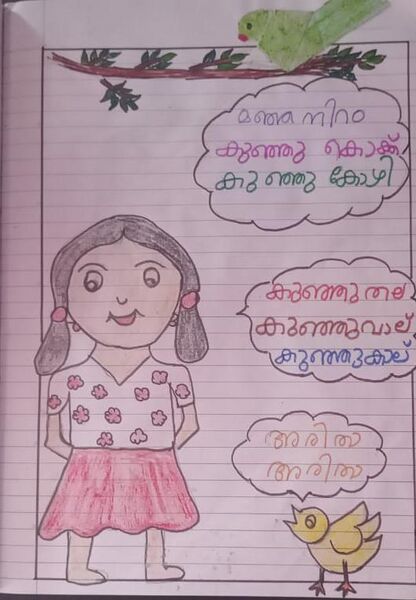 മഞ്ഞ നിറം
കുഞ്ഞു കൊക്ക്
കുഞ്ഞു കോഴി
കുഞ്ഞുതല
കുഞ്ഞുവാല്
കുഞ്ഞുകാല്
അരി താ
അരി താ